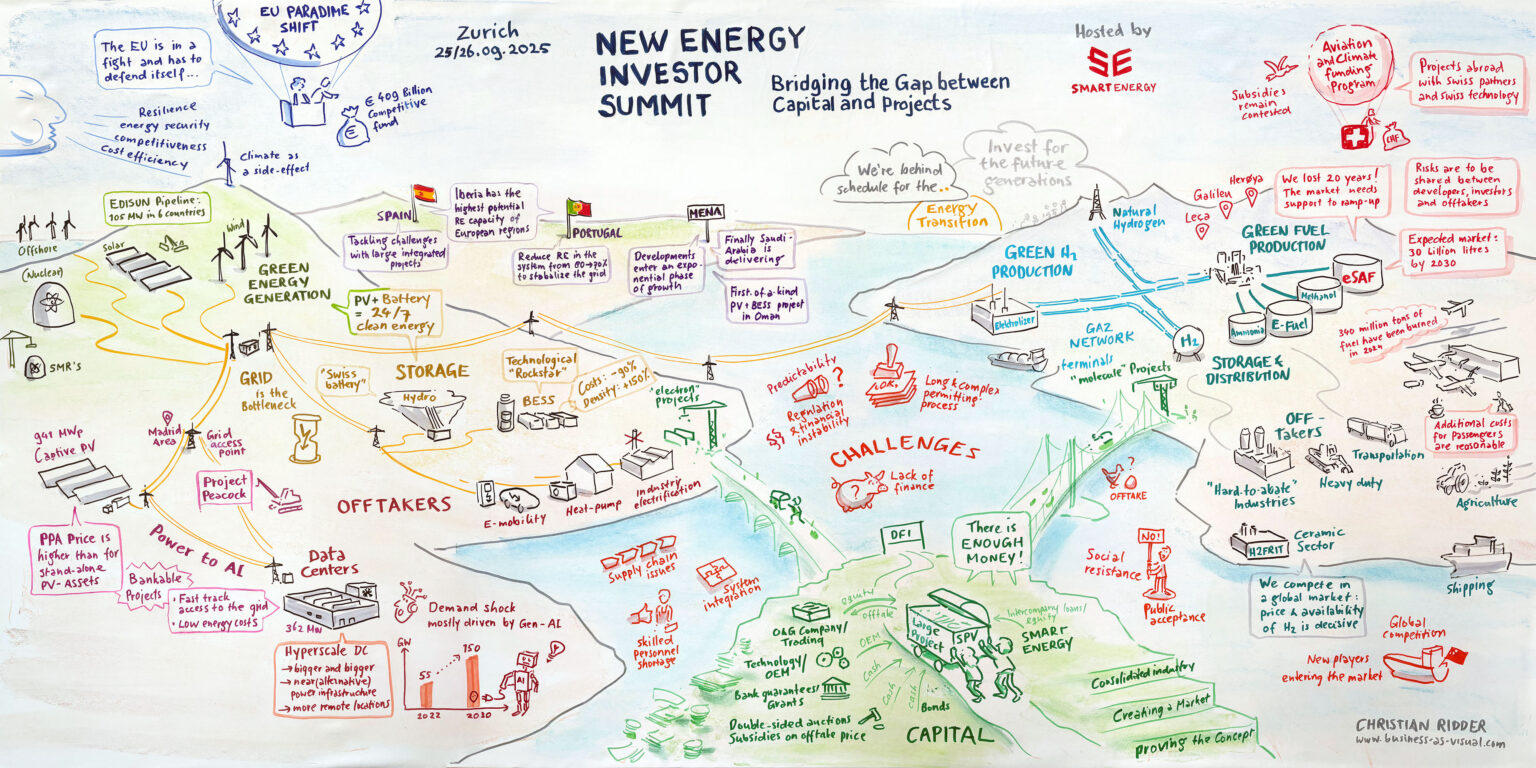 EU PARADIME
SHIFT
The EU is in a
fight and has to
defend itself...
€ 409 Billion
competitive
fund
€
Resilience
energy security
competitiveness
cost efficiency
Climate as
a side-effect
Zurich
25/26.09.2025
NEW ENERGY
INVESTOR
SUMMIT
Bridging the Gap between
Capital and Projects
Hosted by
SE
SMARTENERGY
Aviation
and Climate
funding
Program
Subsidies
remain
contested
CHF
Projects abroad
with Swiss partners
and Swiss technology
We're behind
schedule for the..
Invest for
the future
generations
Energy
Transition
EDISUN Pipeline:
105 MW in 6 countries
Offshore
Solar
Wind
(Nuclear)
SMR's
GREEN
ENERGY
GENERATION
SPAIN
Tackling challenges
with large integrated
projects
Iberia has the
highest potential
RE capacity of
European regions
PORTUGAL
Reduce RE in the
system from 80→70%
to stabalize the grid
MENA
Developments
enter an expo-
nential phase
of growth
Finally Saudi-
Arabia is
delivering
First-of-a-kind
PV+BESS project
in Oman
PV+ Battery
= 24/7
clean energy
GRID
is the
Bottleneck
STORAGE
"Swiss
battery"
Hydro
Technological
"Rockstar"
BESS
Costs: -90%
Density: +150%
"electron"
projects
Natural
Hydrogen
GREEN H2
PRODUCTION
Elektrolizer
GAZ
NETWORK
terminals
H2
"molecule" Projects
Galileu
Herøya
Leca
We lost 20 years!
The market needs
support to ramp-up
Risks are to be
shared between
developers, investors
and offtakers
GREEN FUEL
PRODUCTION
Expected market:
30 billion litres
by 2030
eSAF
Methanol
E-Fuel
Ammonia
STORAGE &
DISTRIBUTION
340 million tons of
fuel have been burned
in 2024
Additional costs
for passengers
are reasonable
OFF-
Takers
"Hard-to-abate"
Industries
Heavy duty
Transportation
Agriculture
H2FRIT
Ceramic
Sector
Shipping
We compete in
a global market:
price & availability
of H2 is decisive
Global
competition
New players
entering the market
941 MWp
Captive PV
Madrid
Area
Grid
access
Point
Project
Peacock
PPA Price is
higher than for
stand-alone
PV-Assets
Power to AI
Bankable
Projects
• Fast track
access to the grid
• Low energy costs
Data
Centers
362 MW
Hyperscale DC
→ bigger and bigger
→ near (alternative)
power infrastructure
→ more remote locations
Demand shock
mostly driven by Gen-AI
GW
55
150
2022
2030
AI
OFFTAKERS
E-mobility
Heat-pump
Industry
electrification
CHALLENGES
Predictability
?
Regulation
& financial
instability
§§
Long & complex
permitting
process
Lack of
finance
?
Supply chain
issues
System
integration
skilled
Personnel
shortage
?
OFFTAKE
Social
resistance
NO!
Public
acceptance
DFI
There is
ENOUGH
MONEY!
equity
offtake
O&G Company/
Trading
OEM
Technology/
OEM
Cash
Bank guarantees/
Grants
Cash
cash
Double-sided auctions
Subsidies on offtake price
Bonds
Large
Project
SPV
Intercompany loans/
equity
SMART
ENERGY
CAPITAL
Consolidated industry
Creating a Market
proving the Concept
CHRISTIAN RIDDER
www.business-as-visual.com